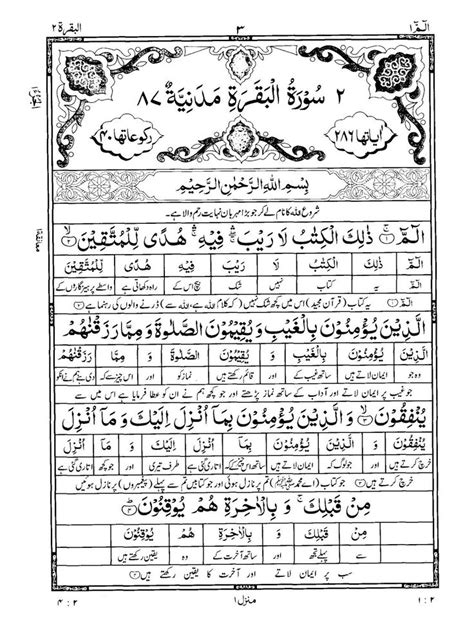 الٓمّٓ ١ ٣ البقرة ٢
٢ سُوْرَةُ الْبَقَرَةِ مَدَنِيَّةٌ ٨٧
اٰيَاتُهَا ٢٨٦ رُكُوْعَاتُهَا ٤٠
بِسْمِ اللهِ الرَّحْمٰنِ الرَّحِيْمِ
شروع اللہ کا نام لے کر جو بڑا مہربان نہایت رحم والا ہے۔
الٓمّٓ ۚ ١ ذٰلِكَ الْكِتٰبُ لَا رَيْبَ ۛ فِيْهِ ۛ هُدًى لِّلْمُتَّقِيْنَ ۙ ٢
الٓمّٓ ذٰلِكَ الْكِتٰبُ لَا رَيْبَ فِيْهِ هُدًى لِّلْمُتَّقِيْنَ
یہ کتاب نہیں شک بیچ اس کے راہ دکھاتی ہے واسطے پرہیزگاروں کے
الٓمّٓ ۝١ یہ کتاب (قرآن مجید) اس میں کچھ شک نہیں (کہ کلام اللہ ہے، اللہ سے) ڈرنے والوں کی رہنما ہے ۝٢
الَّذِيْنَ يُؤْمِنُوْنَ بِالْغَيْبِ وَيُقِيْمُوْنَ الصَّلٰوةَ وَمِمَّا رَزَقْنٰهُمْ
الَّذِيْنَ يُؤْمِنُوْنَ بِالْغَيْبِ وَ يُقِيْمُوْنَ الصَّلٰوةَ وَ مِمَّا رَزَقْنٰهُمْ
وہ جو ایمان لاتے ہیں ساتھ غیب کے اور قائم رکھتے ہیں نماز کو اور اس چیز سے کہ دی ہم نے انکو
جو غیب پر ایمان لاتے اور آداب کے ساتھ نماز پڑھتے اور جو کچھ ہم نے ان کو عطا فرمایا ہے اس میں سے
يُنْفِقُوْنَ ۙ ٣ وَالَّذِيْنَ يُؤْمِنُوْنَ بِمَآ اُنْزِلَ اِلَيْكَ وَمَآ اُنْزِلَ
يُنْفِقُوْنَ وَ الَّذِيْنَ يُؤْمِنُوْنَ بِمَآ اُنْزِلَ اِلَيْكَ وَ مَآ اُنْزِلَ
خرچ کرتے ہیں اور جو لوگ کہ ایمان لاتے ہیں ساتھ اس چیز کے کہ اتاری گئی ہے طرف تیری اور جو کچھ اتاری گئی ہے
خرچ کرتے ہیں ۝٣ اور جو کتاب (اے محمد ﷺ) تم پر نازل ہوئی اور جو کتابیں تم سے پہلے (پیغمبروں) پر نازل ہوئیں
مِنْ قَبْلِكَ ۚ وَبِالْاٰخِرَةِ هُمْ يُوْقِنُوْنَ ؕ ٤
مِنْ قَبْلِكَ وَ بِالْاٰخِرَةِ هُمْ يُوْقِنُوْنَ
سے پہلے تجھ اور ساتھ آخرت کے وہ یقین رکھتے ہیں
سب پر ایمان لاتے اور آخرت کا یقین رکھتے ہیں ۝٤
١ : ٢ منزل ١ ٢ : ٤